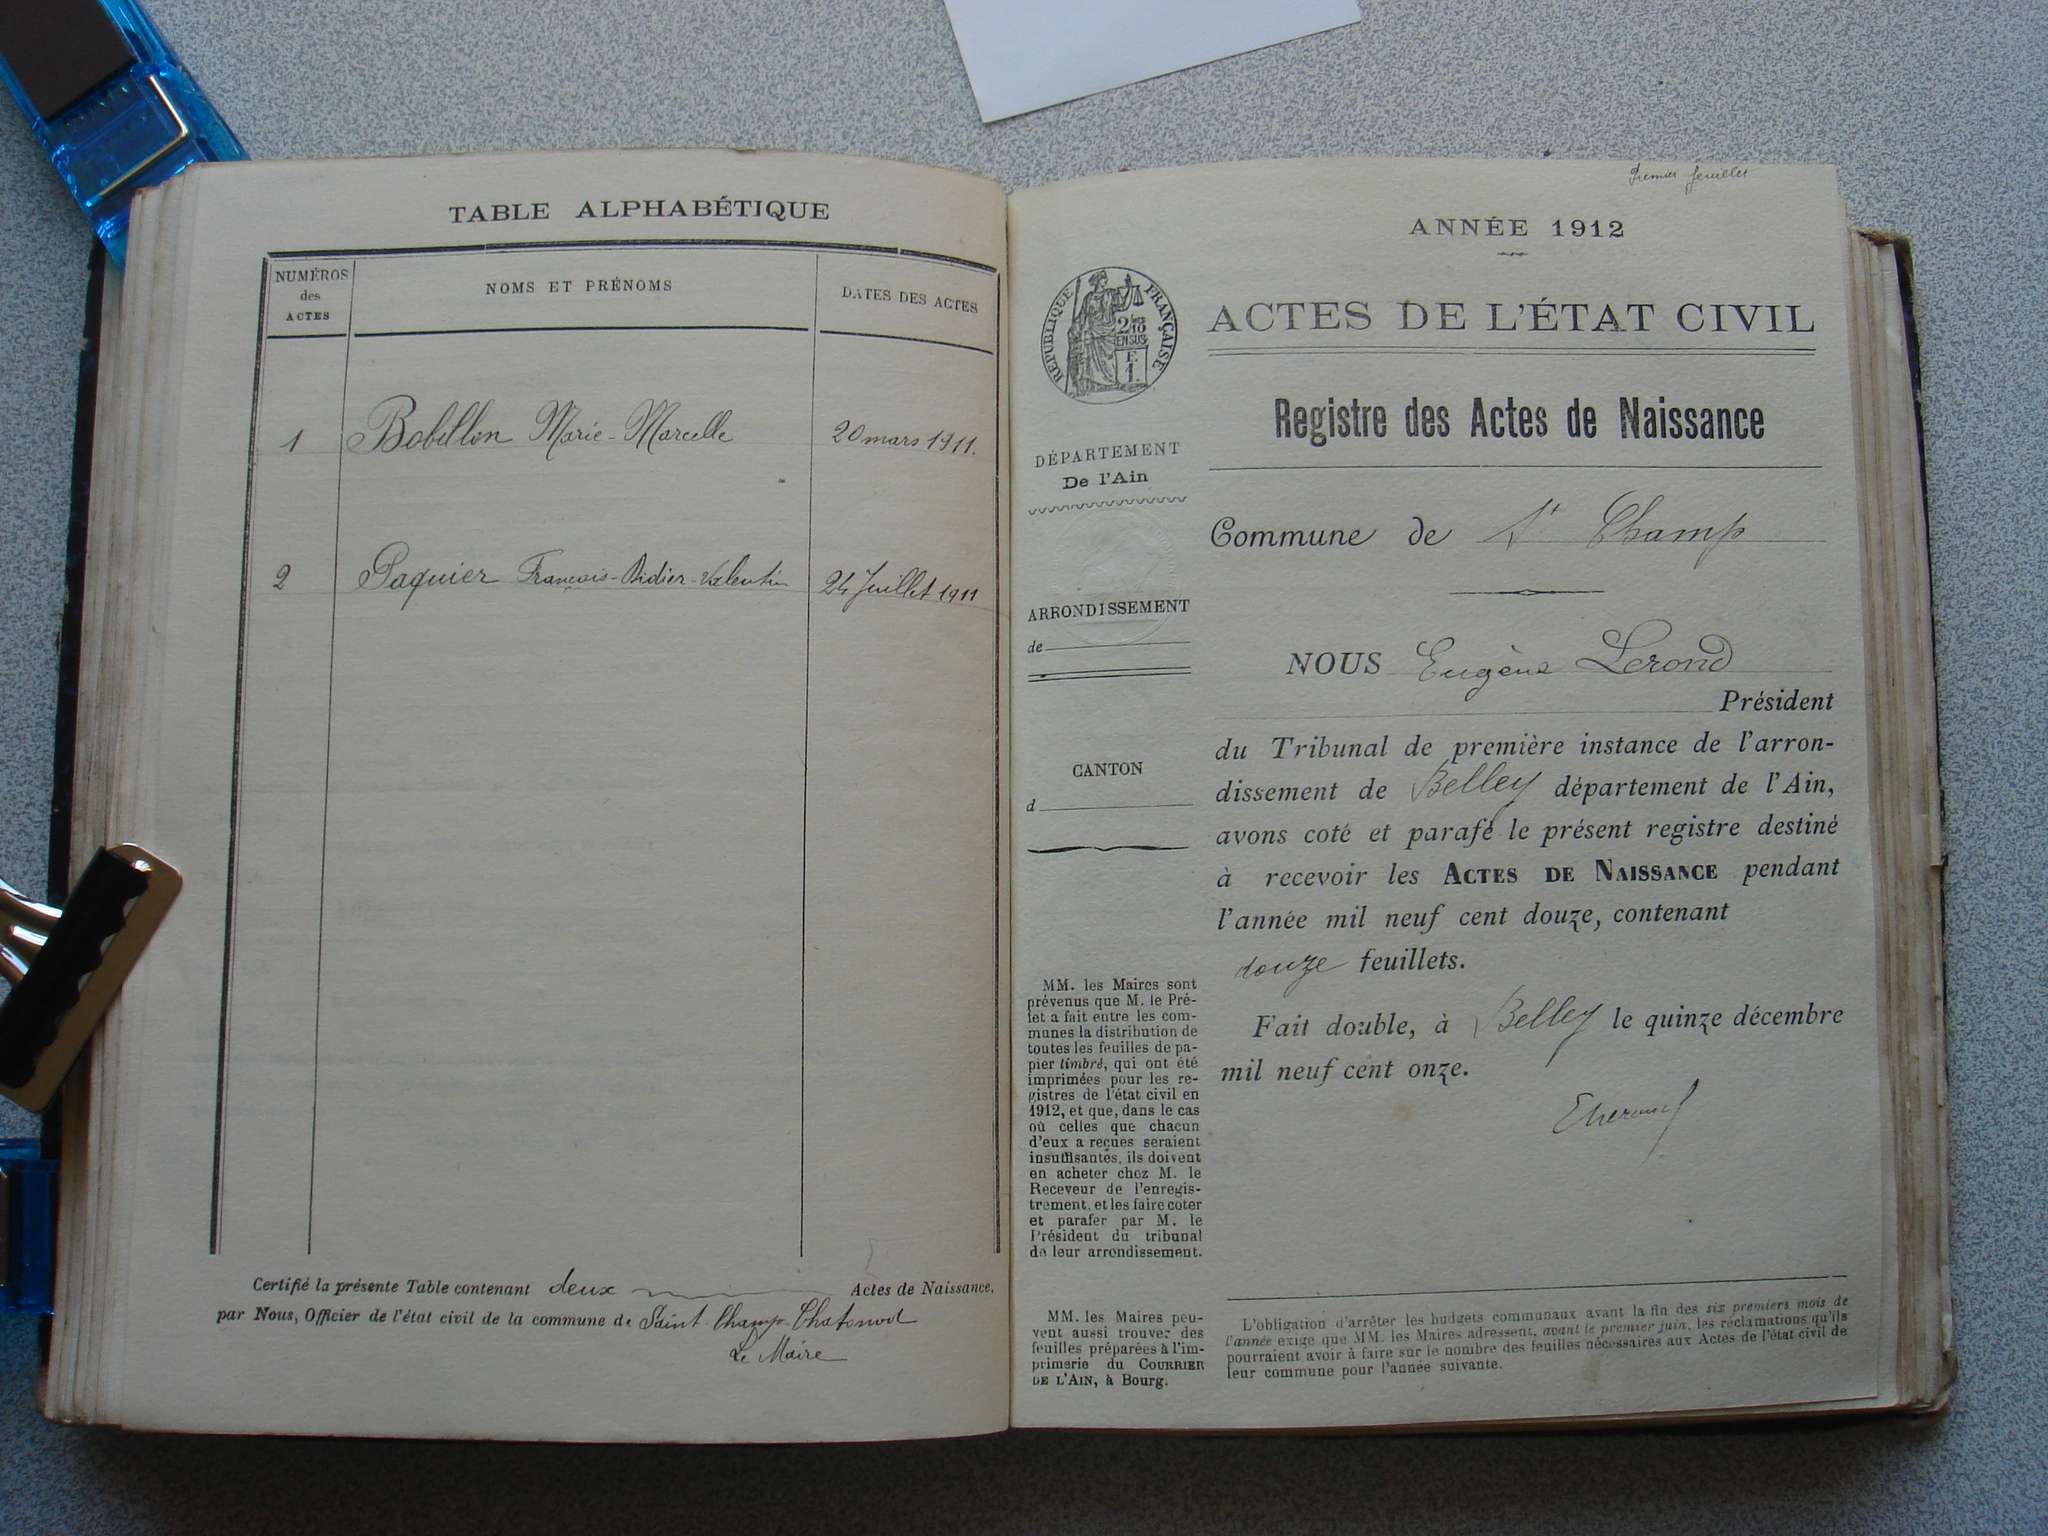 TABLE ALPHABÉTIQUE
NUMÉROS
des
ACTES
NOMS ET PRÉNOMS
DATES DES ACTES
1 Bobillon Marie-Marcelle 20 mars 1911.
2 Paquier François-Didier-Valentin 24 Juillet 1911
Certifié la présente Table contenant deux Actes de Naissance,
par Nous, Officier de l'état civil de la commune de Saint-Champ-Chatonod
Le Maire
Premier feuillet
ANNÉE 1912
RÉPUBLIQUE FRANÇAISE
2/10
EN SUS
F.
1.
ACTES DE L'ÉTAT CIVIL
Registre des Actes de Naissance
DÉPARTEMENT
De l'Ain
Commune de St Champ
ARRONDISSEMENT
de
CANTON
d
NOUS Eugène Lerond
Président
du Tribunal de première instance de l'arron-
dissement de Belley département de l'Ain,
avons coté et parafé le présent registre destiné
à recevoir les ACTES DE NAISSANCE pendant
l'année mil neuf cent douze, contenant
douze feuillets.
Fait double, à Belley le quinze décembre
mil neuf cent onze.
MM. les Maires sont
prévenus que M. le Pré-
fet a fait entre les com-
munes la distribution de
toutes les feuilles de pa-
pier timbré, qui ont été
imprimées pour les re-
gistres de l'état civil en
1912, et que, dans le cas
où celles que chacun
d'eux a reçues seraient
insuffisantes, ils doivent
en acheter chez M. le
Receveur de l'enregis-
trement, et les faire coter
et parafer par M. le
Président du tribunal
de leur arrondissement.
MM. les Maires peu-
vent aussi trouver des
feuilles préparées à l'im-
primerie du COURRIER
DE L'AIN, à Bourg.
L'obligation d'arrêter les budgets communaux avant la fin des six premiers mois de
l'année exige que MM. les Maires adressent, avant le premier juin, les réclamations qu'ils
pourraient avoir à faire sur le nombre des feuilles nécessaires aux Actes de l'état civil de
leur commune pour l'année suivante.